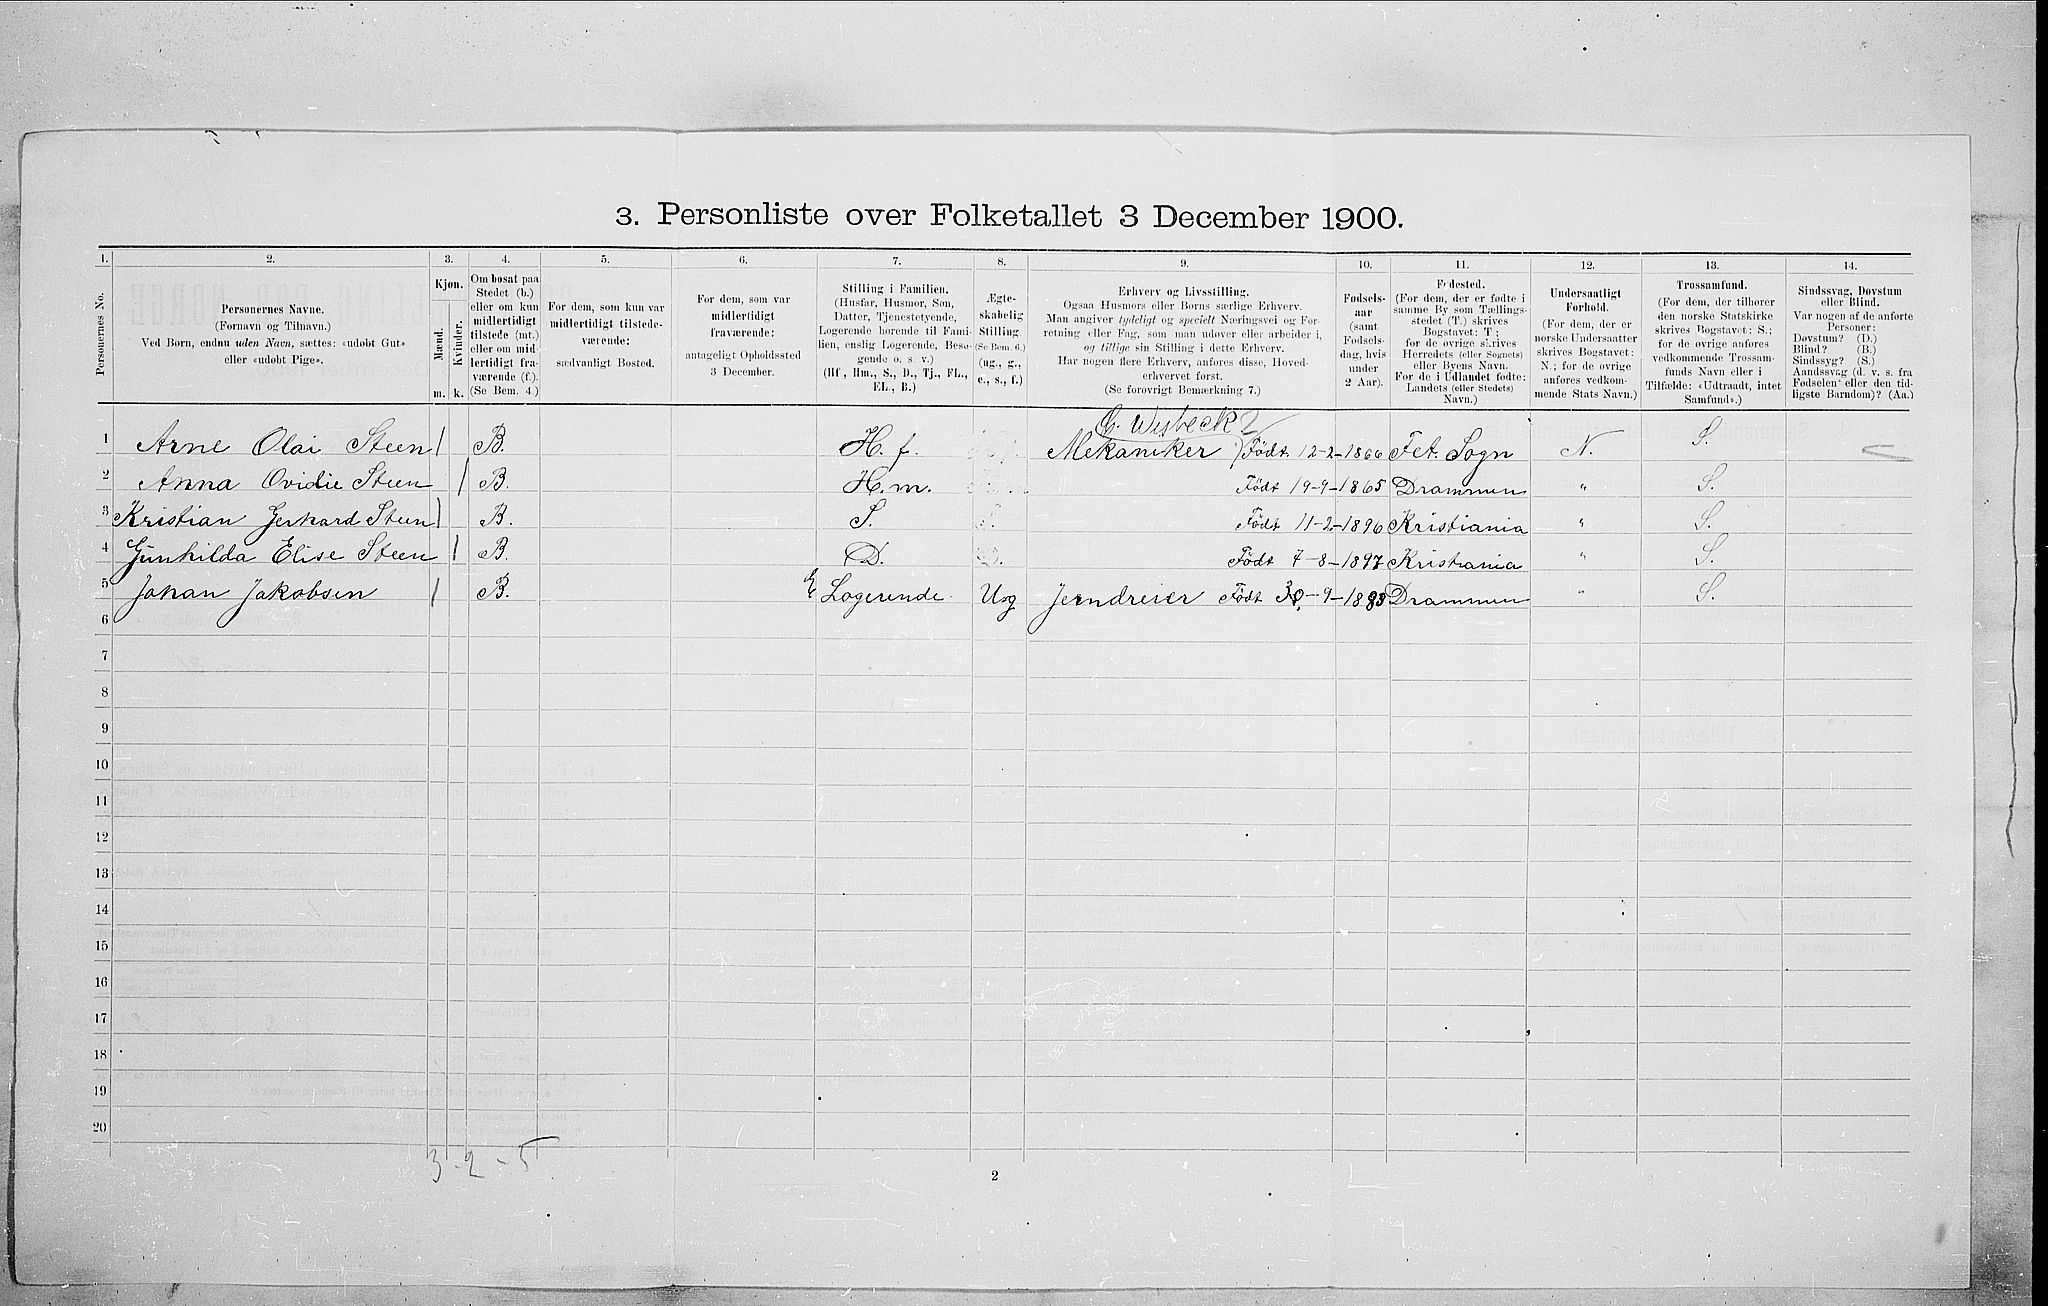 3. Personliste over Folketallet 3 December 1900.
1. 2. 3. 4. 5. 6. 7. 8. 9. 10. 11. 12. 13. 14.
Personernes No.
Personernes Navne.
(Fornavn og Tilnavn.)
Ved Børn, endnu uden Navn, sættes: «udøbt Gut»
eller «udøbt Pige».
Kjøn.
Mænd.
Kvinder.
m. k.
Om bosat paa
Stedet (b.)
eller om kun
midlertidigt
tilstede (mt.)
eller om mid-
lertidigt fra-
værende (f.).
(Se Bem. 4.)
For dem, som kun var
midlertidigt tilstede-
værende:
sædvanligt Bosted.
For dem, som var
midlertidigt
fraværende:
antageligt Opholdssted
3 December.
Stilling i Familien.
(Husfar, Husmor, Søn,
Datter, Tjenestetyende,
Logerende hørende til Fami-
lien, enslig Logerende, Besø-
gende o. s. v.)
(Hf., Hm., S., D., Tj., FL.,
EL., B.)
Ægte-
skabelig
Stilling
(Se Bem. 6.)
(ug., g.,
e., s., f.)
Erhverv og Livsstilling.
Ogsaa Husmors eller Børns særlige Erhverv.
Man angiver tydeligt og specielt Næringsvei og For-
retning eller Fag, som man udøver eller arbeider i,
og tillige sin Stilling i dette Erhverv.
Har nogen flere Erhverv, anføres disse, Hoved-
erhvervet først.
(Se forøvrigt Bemærkning 7.)
Fødsels-
aar
(samt
Fødsels-
dag, hvis
under
2 Aar).
Fødested.
(For dem, der er fødte i
samme By som Tællings-
stedet (T.) skrives
Bogstavet: T;
for de øvrige skrives
Herredets (eller Sognets)
eller Byens Navn.
For de i Udlandet fødte:
Landets (eller Stedets)
Navn.)
Undersaatligt
Forhold.
(For dem, der er
norske Undersaatter
skrives Bogstavet:
N.; for de øvrige
anføres vedkom-
mende Stats Navn.)
Trossamfund.
(For dem, der tilhører
den norske Statskirke
skrives Bogstavet: S.;
for de øvrige anføres
vedkommende Trossam-
funds Navn eller i
Tilfælde: «Udtraadt, intet
Samfund».)
Sindssvag, Døvstum
eller Blind.
Var nogen af de anførte
Personer:
Døvstum? (D.)
Blind? (B.)
Sindssyg? (S.)
Aandssvag (d. v. s. fra
Fødselen eller den tid-
ligste Barndom)? (Aa.)
1 Arne Olai Steen 1 B. H.f. Mekaniker Født 12-2-1866 Fet. Sogn N. S.
2 Anna Ovidie Steen 1 B. H.m. Født 19-9-1865 Drammen " S.
3 Kristian Gerhard Steen 1 B. S. Født 11-2-1896 Kristiania " S.
4 Gunhilda Elise Steen 1 B. D. Født 7-8-1897 Kristiania " S.
5 Johan Jakobsen 1 B. E Logerende Ug Jerndreier Født 30-9-1883 Drammen " S.
6
7
8
9
10
11
12
13
14
15
16
17
18
19
20
3-2-5
2